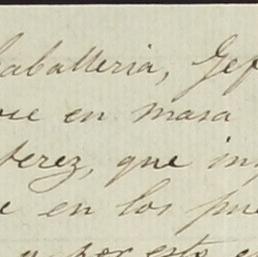 Caballeria, Gef
en masa
terez, que in
e en los pue
y por esto e